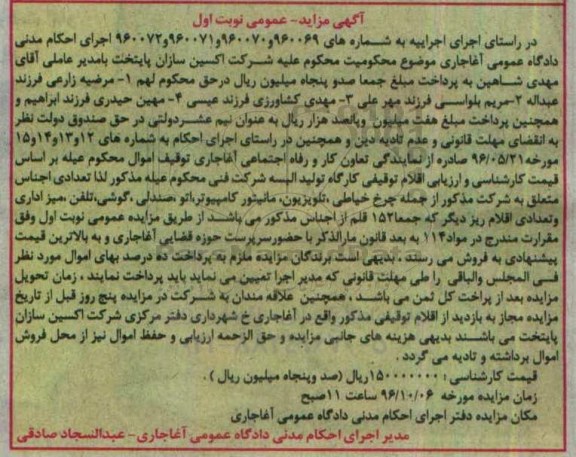 آگهی مزاید- عمومی نوبت اول
در راستای اجرای اجراییه به شماره های ۹۶۰۰۶۹و۹۶۰۰۷۰و۹۶۰۰۷۱و۹۶۰۰۷۲ اجرای احکام مدنی
دادگاه عمومی آغاجاری موضوع محکومیت محکوم علیه شرکت اکسین سازان پایتخت بامدیر عاملی آقای
مهدی شاهین به پرداخت مبلغ جمعا صدو پنجاه میلیون ریال درحق محکوم لهم ۱- مرضیه زارعی فرزند
عبداله ۲-مریم بلواسی فرزند مهر علی ۳- مهدی کشاورزی فرزند عیسی ۴- مهین حیدری فرزند ابراهیم و
همچنین پرداخت مبلغ هفت میلیون وپانصد هزار ریال به عنوان نیم عشردولتی در حق صندوق دولت نظر
به انقضای مهلت قانونی و عدم تادیه دین و همچنین در راستای اجرای احکام به شماره های ۱۲و۱۳و۱۴و۱۵
مورخه ۹۶/۰۵/۲۱ صادره از نمایندگی تعاون کار و رفاه اجتماعی آغاجاری توقیف اموال محکوم عیله بر اساس
قیمت کارشناسی و ارزیابی اقلام توقیفی کارگاه تولید البسه شرکت فنی محکوم عیله مذکور لذا تعدادی اجناس
متعلق به شرکت مذکور از جمله چرخ خیاطی ،تلویزیون، مانیتور کامپیوتر،اتو ،صندلی ،گوشی،تلفن ،میز اداری
وتعدادی اقلام ریز دیگر که جمعا۱۵۲ قلم از اجناس مذکور می باشد از طریق مزایده عمومی نوبت اول وفق
مقرارت مندرج در مواد۱۱۴ به بعد قانون مارالذکر با حضورسرپرست حوزه قضایی آغاجاری و به بالاترین قیمت
پیشنهادی به فروش می رسند ، بدیهی است برندگان مزایده ملزم به پرداخت ده درصد بهای اموال مورد نظر
فی المجلس والباقی را طی مهلت قانونی که مدیر اجرا تعیین می نماید باید پرداخت نمایند ، زمان تحویل
مزایده بعد از پراخت کل ثمن می باشد ، همچنین علاقه مندان به شرکت در مزایده پنج روز قبل از تاریخ
مزایده مجاز به بازدید از اقلام توقیفی مذکور واقع در آغاجاری خ شهرداری دفتر مرکزی شرکت اکسین سازان
پایتخت می باشند بدیهی هزینه های جانبی مزایده و حق الزحمه ارزیابی و حفظ اموال نیز از محل فروش
اموال برداشته و تادیه می گردد .
قیمت کارشناسی : ۱۵۰۰۰۰۰۰۰ریال (صد وپنجاه میلیون ریال ) .
زمان مزایده مورخه ۹۶/۱۰/۰۶ ساعت ۱۱صبح
مکان مزایده دفتر اجرای احکام مدنی دادگاه عمومی آغاجاری
مدیر اجرای احکام مدنی دادگاه عمومی آغاجاری- عبدالسجاد صادقی